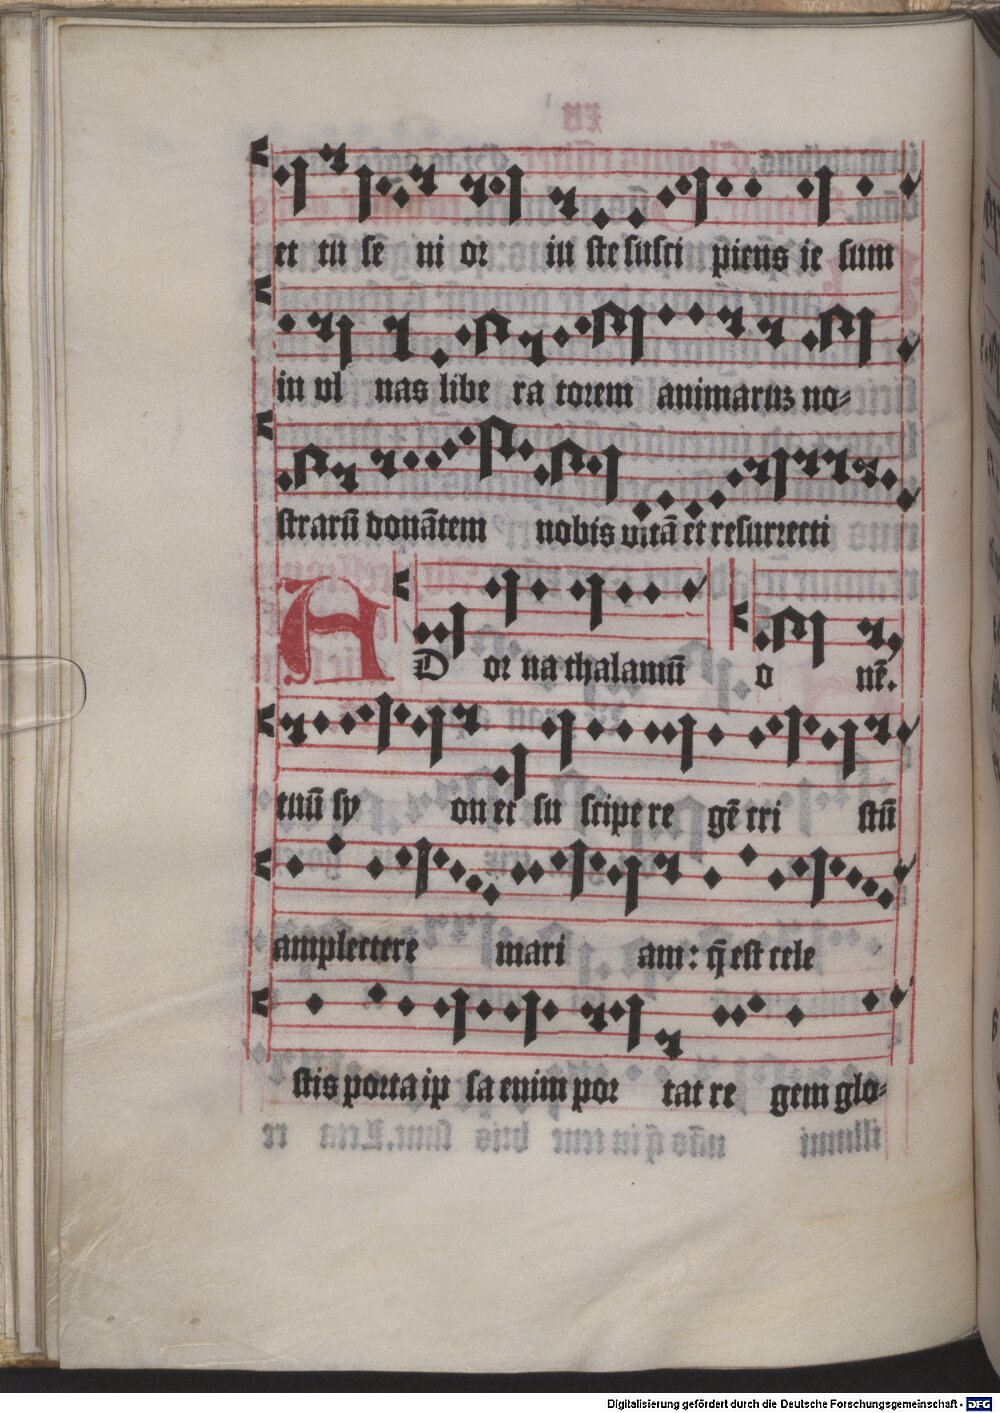 et tu se ni or iu ste susci piens ie sum
in vl nas libe ra torem animaruz no-
straru᷑ donātem nobis uitā et resurrecti
AD or na thalamū o nē.
tuū sy on et su scipe re gē cri stū
amplectere mari am: q̄ est cele
stis porta ip sa enim por tat re gem glo-
Digitalisierung gefördert durch die Deutsche Forschungsgemeinschaft - DFG